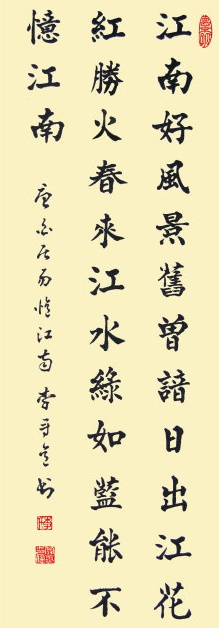 江南好風景舊曾諳日出江花
紅勝火春來江水綠如藍能不
憶江南
唐白居易憶江南 李